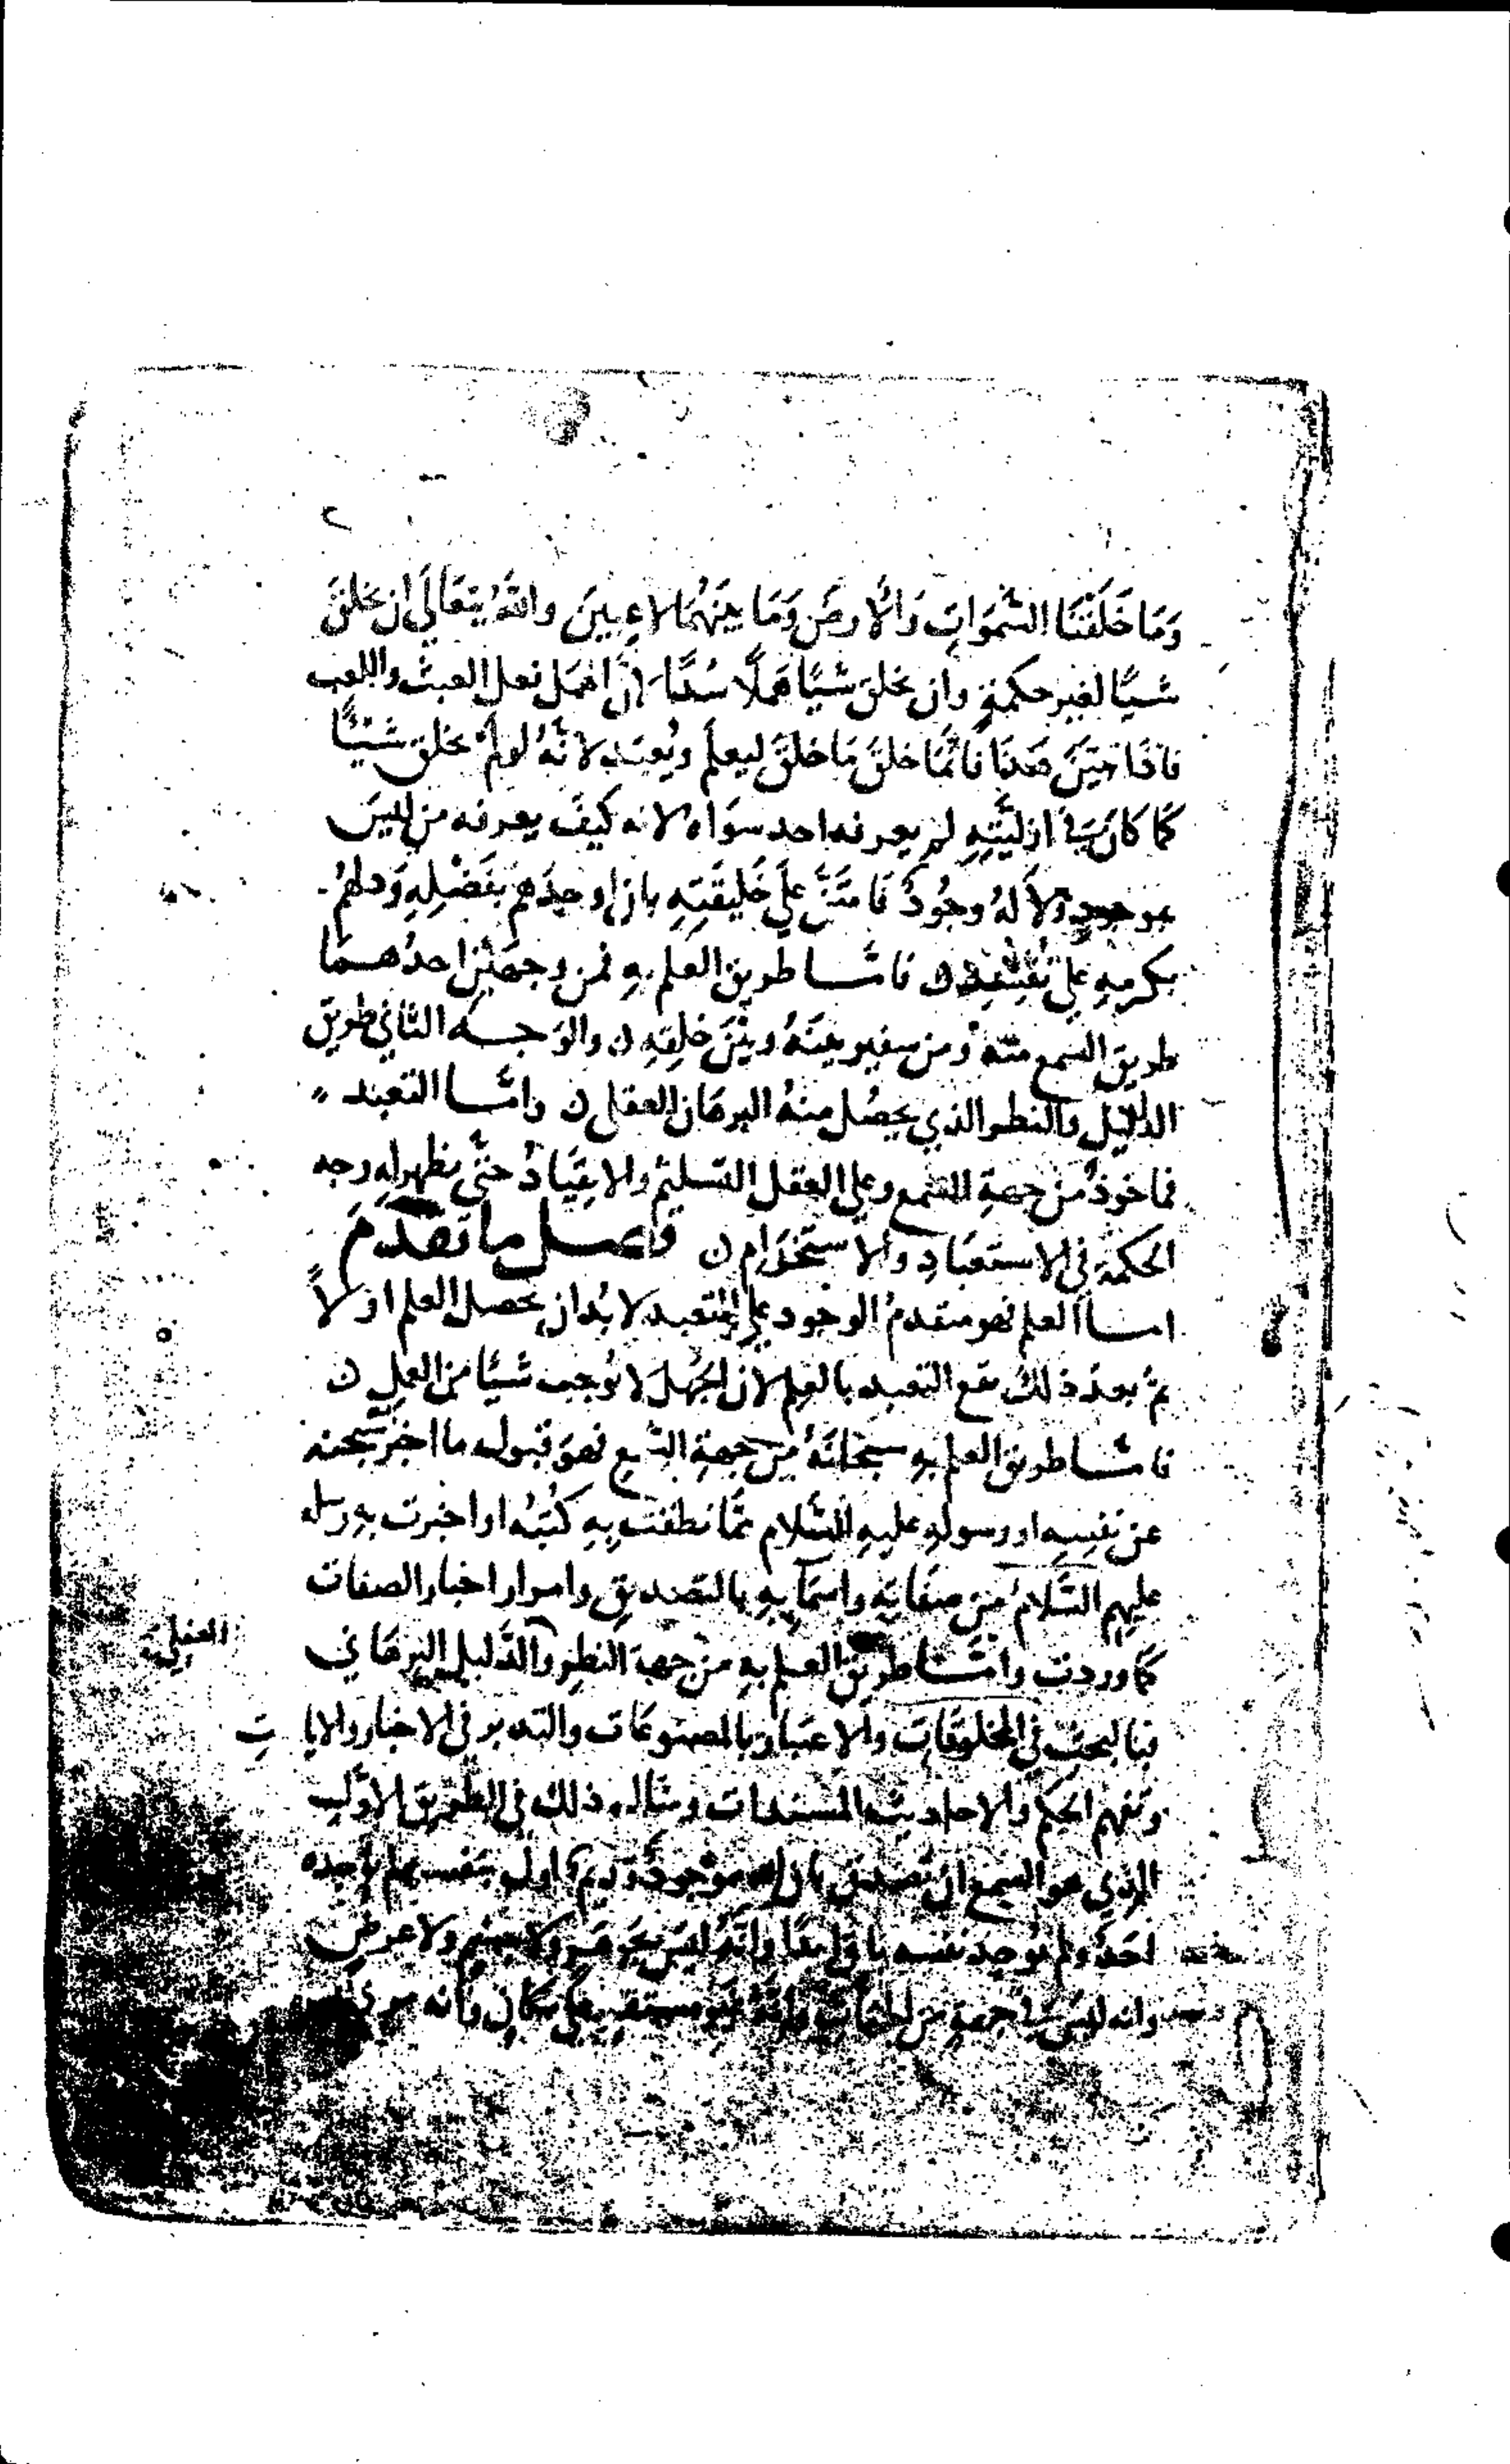 وَمَا خَلَقْنَا السَّمَوَاتِ وَالأَرضَ وَمَا بَيْنَهُمَا لاعِبينَ واللهُ يتعَالَى ان يخلقَ
شيئًا لغير حكمةٍ وان يخلقَ شيئًا هَمَلًا سُدًا لانّ الهمَل فعل العبث واللعب
فاذا تبيَّنَ هَذا فَانَّمَا خلقَ مَا خلقَ ليعلمَ ويُعبَد لانّهُ لو لم يخلق شيئًا
كمَا كانَ في ازليّتِهِ لم يعرفه احد سوَاه لانه كيفَ يعرفه من ليسَ
بموجودٍ ولا لهُ وجُودٌ فَامتَنَّ عَلَى خَليقَتِهِ بان اوجدَهم بفَضْلِهِ وَدلهُم
بكرمِهِ عَلى نَفْسِهِ ن فامَّا طريق العلم بهِ فمن وجهَيْن احدُهمَا
طريق السمع منه ومن سفيرٍ بينَهُ وبَيْنَ خلقِهِ ن والوَجه الثَّاني طريق
الدَّليل والنظر الذي يحصُل منهُ البرهَان العقلي ن وامَّا التعبد
فماخوذٌ من جهةِ السَّمع وعلى العقل التَّسليم والانقيَادُ حتَّى يظهر له وجه
الحكمَة في الاستعبَادِ والاستخدَام ن فصل ما تقدم
امّا العلم فهو متقدمُ الوجود على المتعبد لا بُد ان يحصل العلم اولاً
ثم بعدَ ذلك يقع التعبد بالعِلم لان الجهلَ لا يُوجب شيئًا من العمل ن
فامَّا طريق العلم بهِ سبحَانَهُ من جهةِ السَّمع فهوَ قبوله ما اخبر سبحنه
عن نفسِهِ او رسولهِ عليهِ السَّلام ممَّا نطقت بِهِ كتُبُه او اخبرت بهِ رسله
عليهم السَّلام من صفَاتِهِ واسمَآيهِ بالتصديق وامرار اخبار الصفات
كمَا وردت وامَّا طريق العلم بهِ من جهةِ النظر والدَّليل البرهَاني
العقلي
فبالبحث في المخلوقَاتِ والاعتبَار بالمصنوعَات والتدبر في الاخبار والايات
وتفهم الحكم والاحاديث المسندات ومثال ذلك في الطريق الاول
الذي هو السمع ان تصدق بان الله موجودٌ قديم اول بنفسه لم يوجده
احدٌ ولم يُوجد نفسه باق ابدًا وانَّهُ ليسَ بجَوهَر ولا جسم ولا عرضٍ
وانه ليسَ في جهةٍ من الجهَات وانَّهُ غير مستقر على مكانٍ وانه